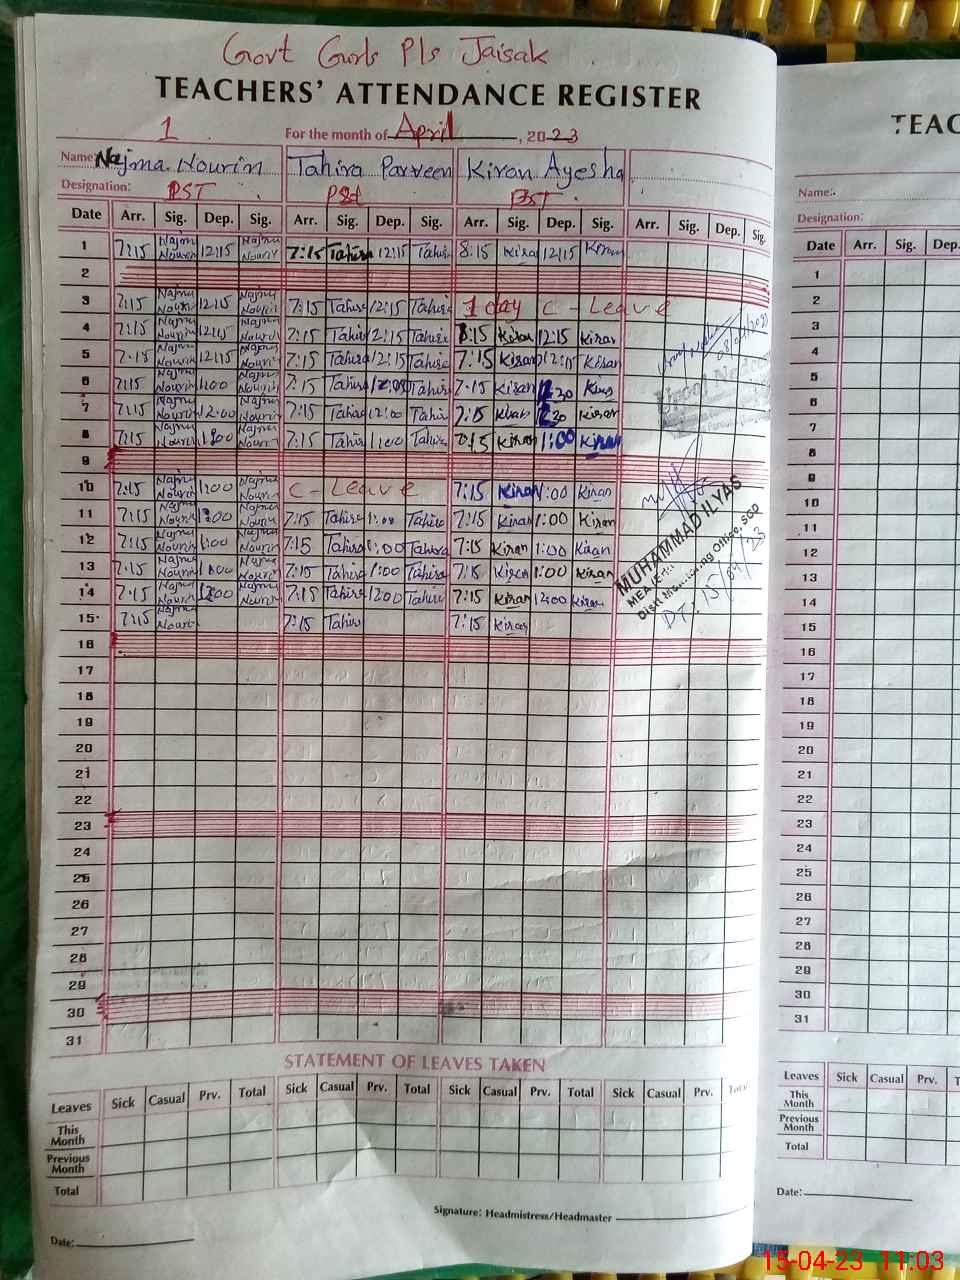 Govt Girls P/s Jaisak
TEACHERS' ATTENDANCE REGISTER
1 For the month of April, 2023
Name: Najma Nourin Tahira Parveen Kiran Ayesha
Designation: PST PST PST
Date Arr. Sig. Dep. Sig. Arr. Sig. Dep. Sig. Arr. Sig. Dep. Sig. Arr. Sig. Dep. Sig.
1 7:15 Najma Nourin 12:15 Najma Nourin 7:15 Tahira 12:15 Tahira 8:15 Kiran 12:15 Kiran
2
3 7:15 Najma Nourin 12:15 Najma Nourin 7:15 Tahira 12:15 Tahira 1 day C - Leave
4 7:15 Najma Nourin 12:15 Najma Nourin 7:15 Tahira 12:15 Tahira 8:15 Kiran 12:15 Kiran
5 7:15 Najma Nourin 12:15 Najma Nourin 7:15 Tahira 12:15 Tahira 7:15 Kiran 12:15 Kiran
6 7:15 Najma Nourin 1:00 Najma Nourin 7:15 Tahira Tahira 7:15 Kiran Kiran
7 7:15 Najma Nourin 12:00 Najma Nourin 7:15 Tahira 12:00 Tahira 7:15 Kiran Kiran
8 7:15 Najma Nourin Najma Nourin 7:15 Tahira 1:00 Tahira 7:15 Kiran 1:00 Kiran
9
10 7:15 Najma Nourin 1:00 Najma Nourin C - Leave 7:15 Kiran 1:00 Kiran
11 7:15 Najma Nourin 1:00 Najma Nourin 7:15 Tahira 1:00 Tahira 7:15 Kiran 1:00 Kiran
12 7:15 Najma Nourin 1:00 Najma Nourin 7:15 Tahira 1:00 Tahira 7:15 Kiran 1:00 Kiran
13 7:15 Najma Nourin 1:00 Najma Nourin 7:15 Tahira 1:00 Tahira 7:15 Kiran 1:00 Kiran
14 7:15 Najma Nourin 12:00 Najma Nourin 7:15 Tahira 12:00 Tahira 7:15 Kiran 12:00 Kiran
15 7:15 Najma Nourin 7:15 Tahira 7:15 Kiran
16
17
18
19
20
21
22
23
24
25
26
27
28
29
30
31
MUHAMMAD ILYAS
MEA
Distt Monitoring Office, SGD
DT: 15/04/23
STATEMENT OF LEAVES TAKEN
Leaves Sick Casual Prv. Total Sick Casual Prv. Total Sick Casual Prv. Total Sick Casual Prv. Total
This Month
Previous Month
Total
Signature: Headmistress/Headmaster
Date:
TEAC
Name:
Designation:
Date Arr. Sig. Dep.
1
2
3
4
5
6
7
8
9
10
11
12
13
14
15
16
17
18
19
20
21
22
23
24
25
26
27
28
29
30
31
Leaves Sick Casual Prv. T
This Month
Previous Month
Total
Date:
15-04-23 11:03